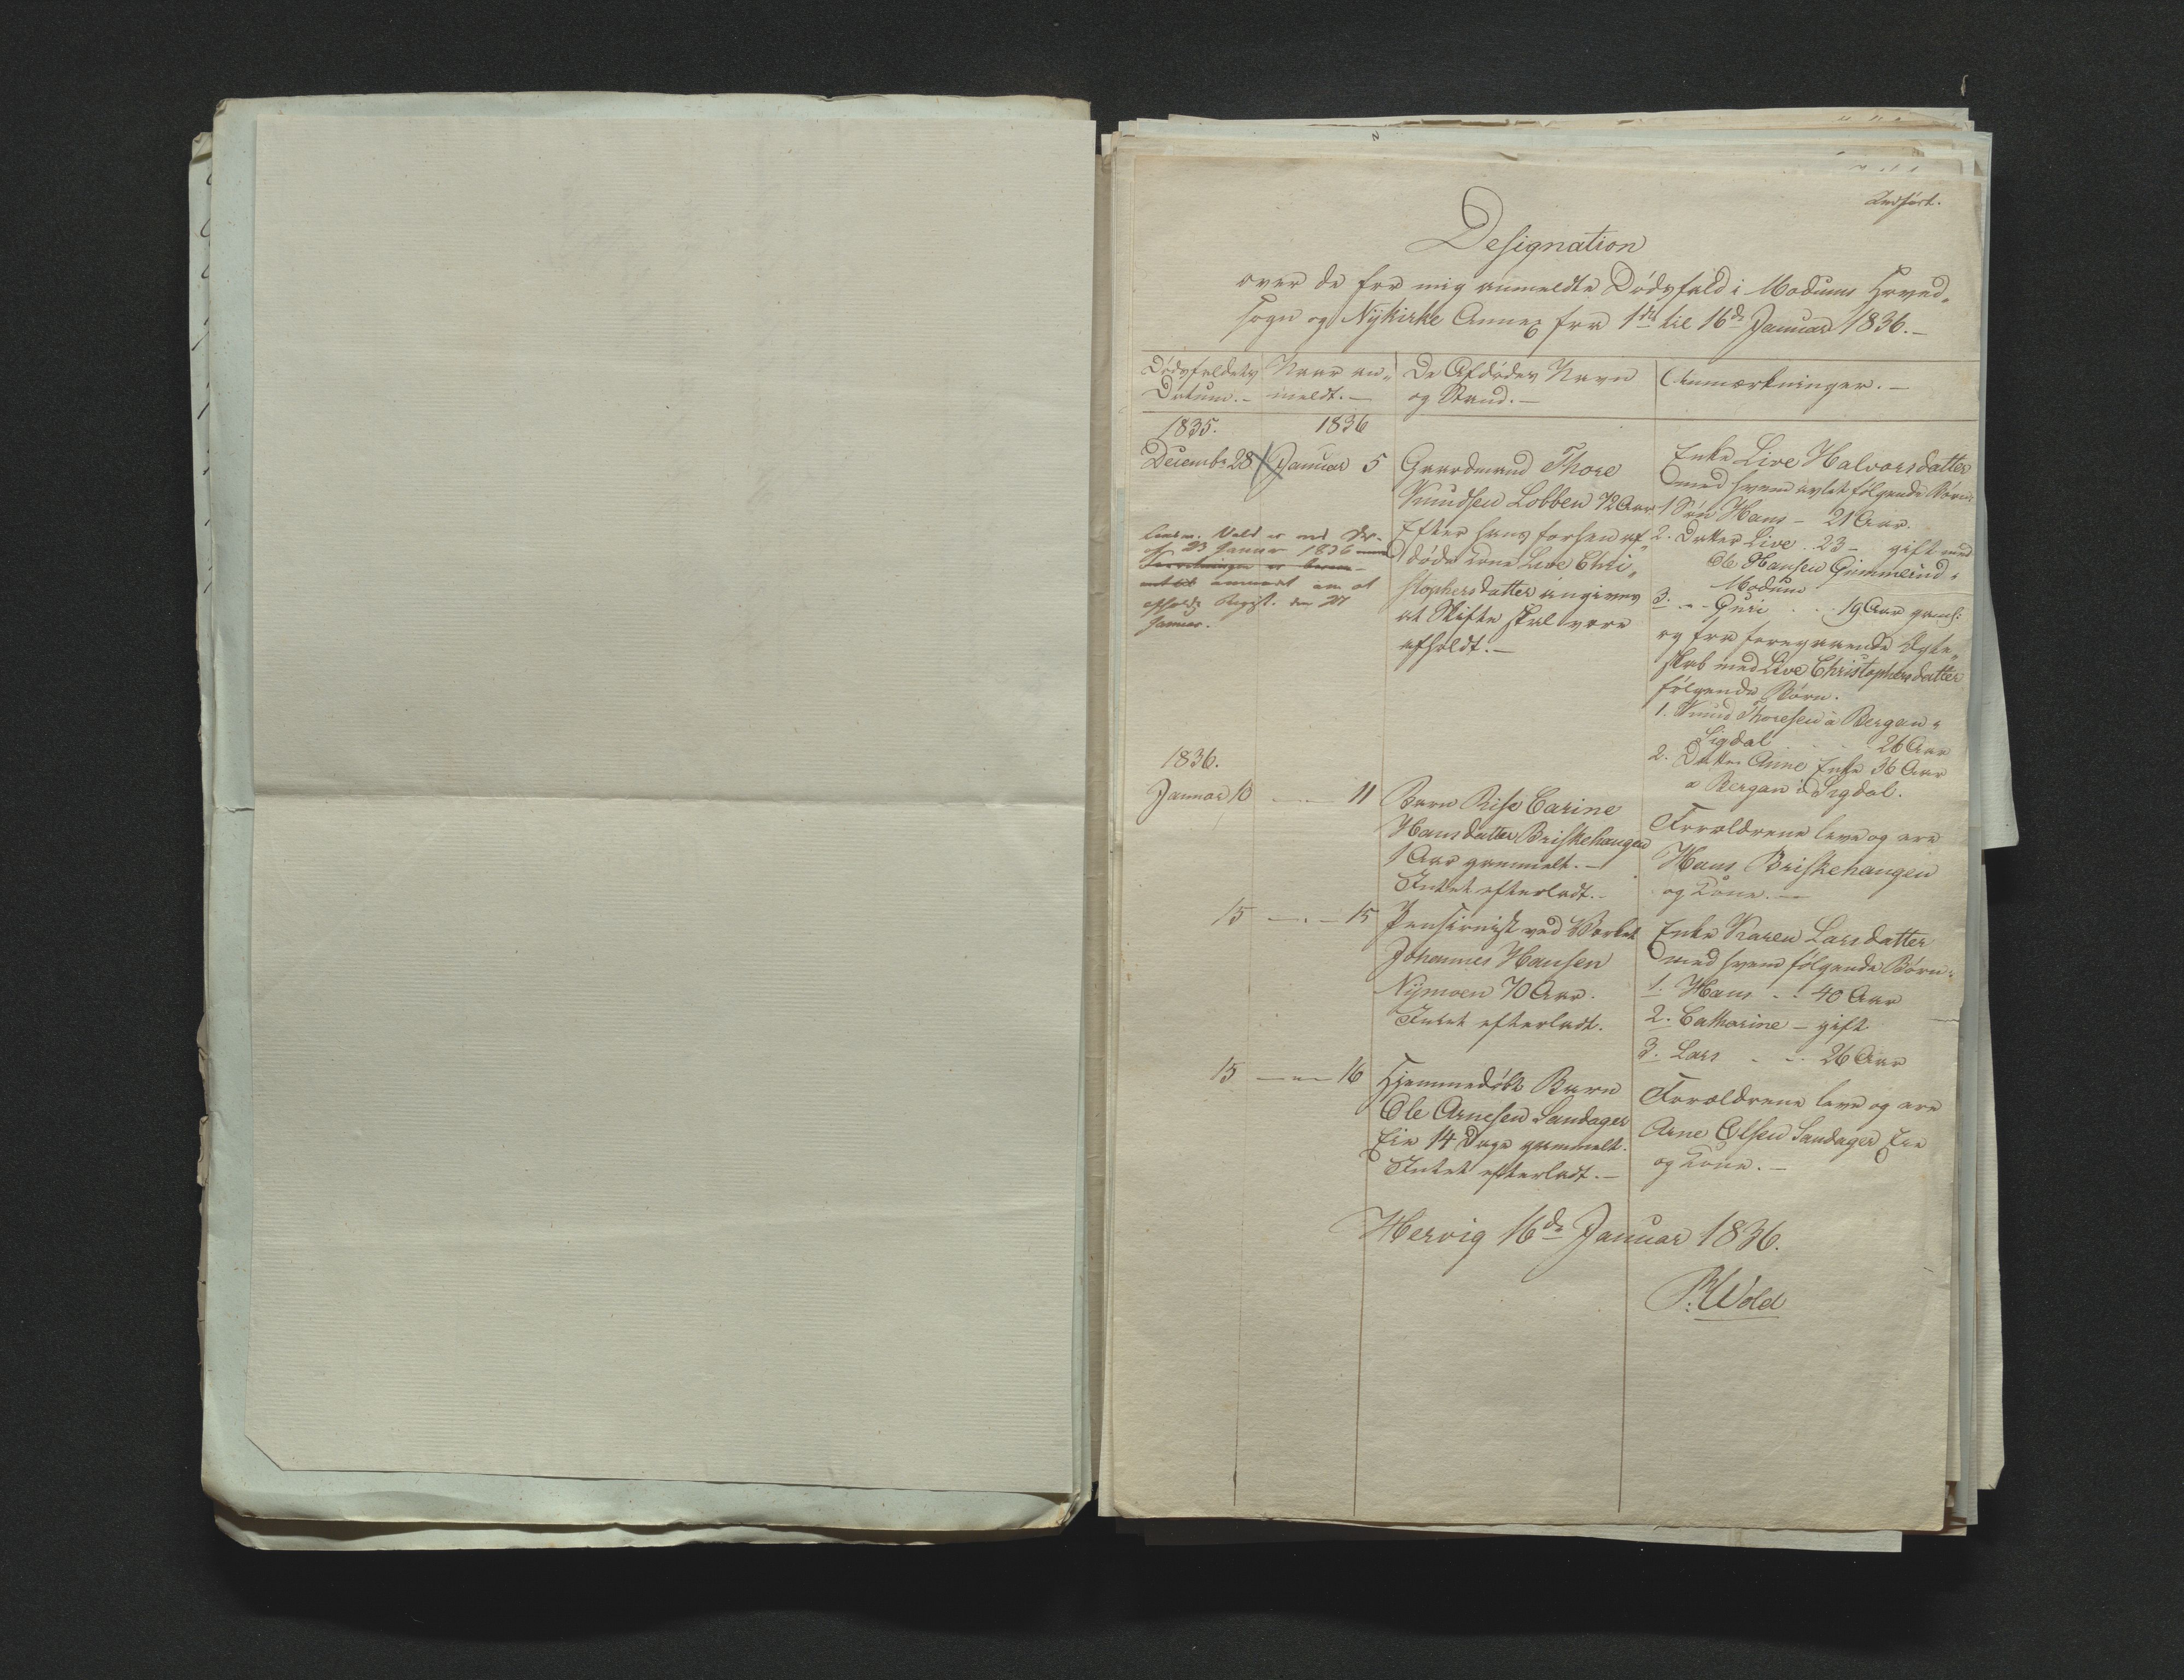 Indført.
Designation
over de for mig anmeldte Dødsfald i Modums Hoved-
sogn og Nykirke Annex fra 1ste til 16de Januar 1836.-
Dødsfaldets Datum.-
Naar an-
meldt.-
De Afdødes Navn
og Stand.-
Anmærkninger.-
1835.
1836
Decembr 28
Januar 5
Gaardmand Thore
Knudsen Lobben 72 Aar
Efter hans forhen af-
døde Kone Live Chri-
stophersdatter angives
at Skifte skal være
afholdt.-
Enke Live Halvorsdatter
med hvem avlet følgende Børn:
1 Søn Hans - 21 Aar.
2. Datter Live . 23 - gift med
Ole Hansen Gimmerud
Modum
3. - - Guri . . . 19 Aar gaml:
og fra foregaaende Ægte-
skab med Live Christophersdatter
følgende Børn.
1. Knud Thoresen a Bergan i
Sigdal . . . 26 Aar
2. Datter Anne Enke 36 Aar
a Bergan i Sigdal.
Lensm. Wold er ved Skr.
af 23 Januar 1836
anmodet om at
afholde Regist. den 27
Januar.
1836.
Januar 10
11
Barn Rise Carine
Hansdatter Briskehaugen
1 Aar gammelt.-
Intet efterladt.-
Forældrene leve og ere
Hans Briskehaugen
og Kone.-
15
15
Pensionist ved Værket
Johannes Hansen
Nymoen 70 Aar.
Intet efterladt.
Enke Karen Larsdatter
med hvem følgende Børn:
1. Hans . . 40 Aar
2. Catharine - gift
3. Lars . . . 26 Aar
15
16
Hjemmedøbt Barn
Ole Arnesen Sandager
Eie 14 Dage gammelt.
Intet efterladt.-
Forældrene leve og ere
Arne Olsen Sandager Eie
og Kone.-
Hervig 16de Januar 1836.
P. Wold